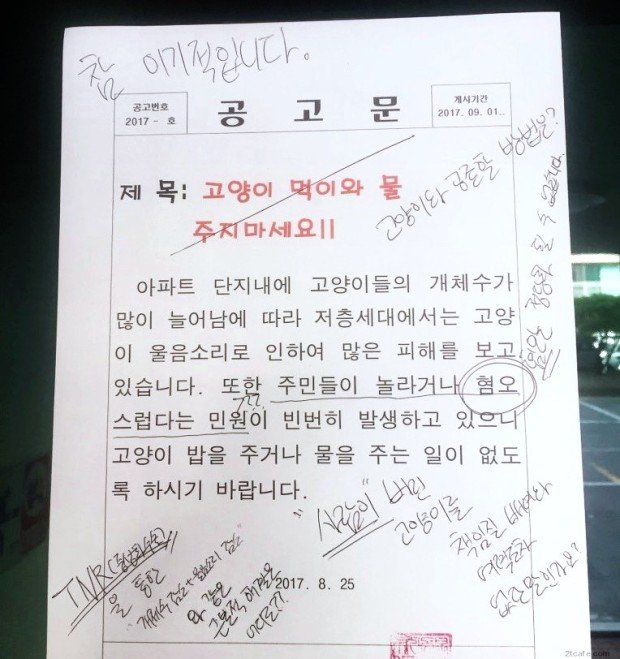 참 이기적입니다.
공고번호
2017 - 호
공 고 문
게시기간
2017. 09. 01..
제 목: 고양이 먹이와 물
주지마세요!!
고양이와 공존할 방법은?
혐오는 정당화 될 수 없습니다
아파트 단지내에 고양이들의 개체수가
많이 늘어남에 따라 저층세대에서는 고양
이 울음소리로 인하여 많은 피해를 보고
있습니다. 또한 주민들이 놀라거나 혐오
스럽다는 민원이 빈번히 발생하고 있으니
???
고양이 밥을 주거나 물을 주는 일이 없도
록 하시기 바랍니다.
"사람이" 버린
고양이를
책임질
없단말인가요?
TNR(중성화수술)
을 통한
"개체수 감소 + 울음소리 감소"
와 같은
근본적 해결은
어디로?
2017. 8. 25
2tcafe.com